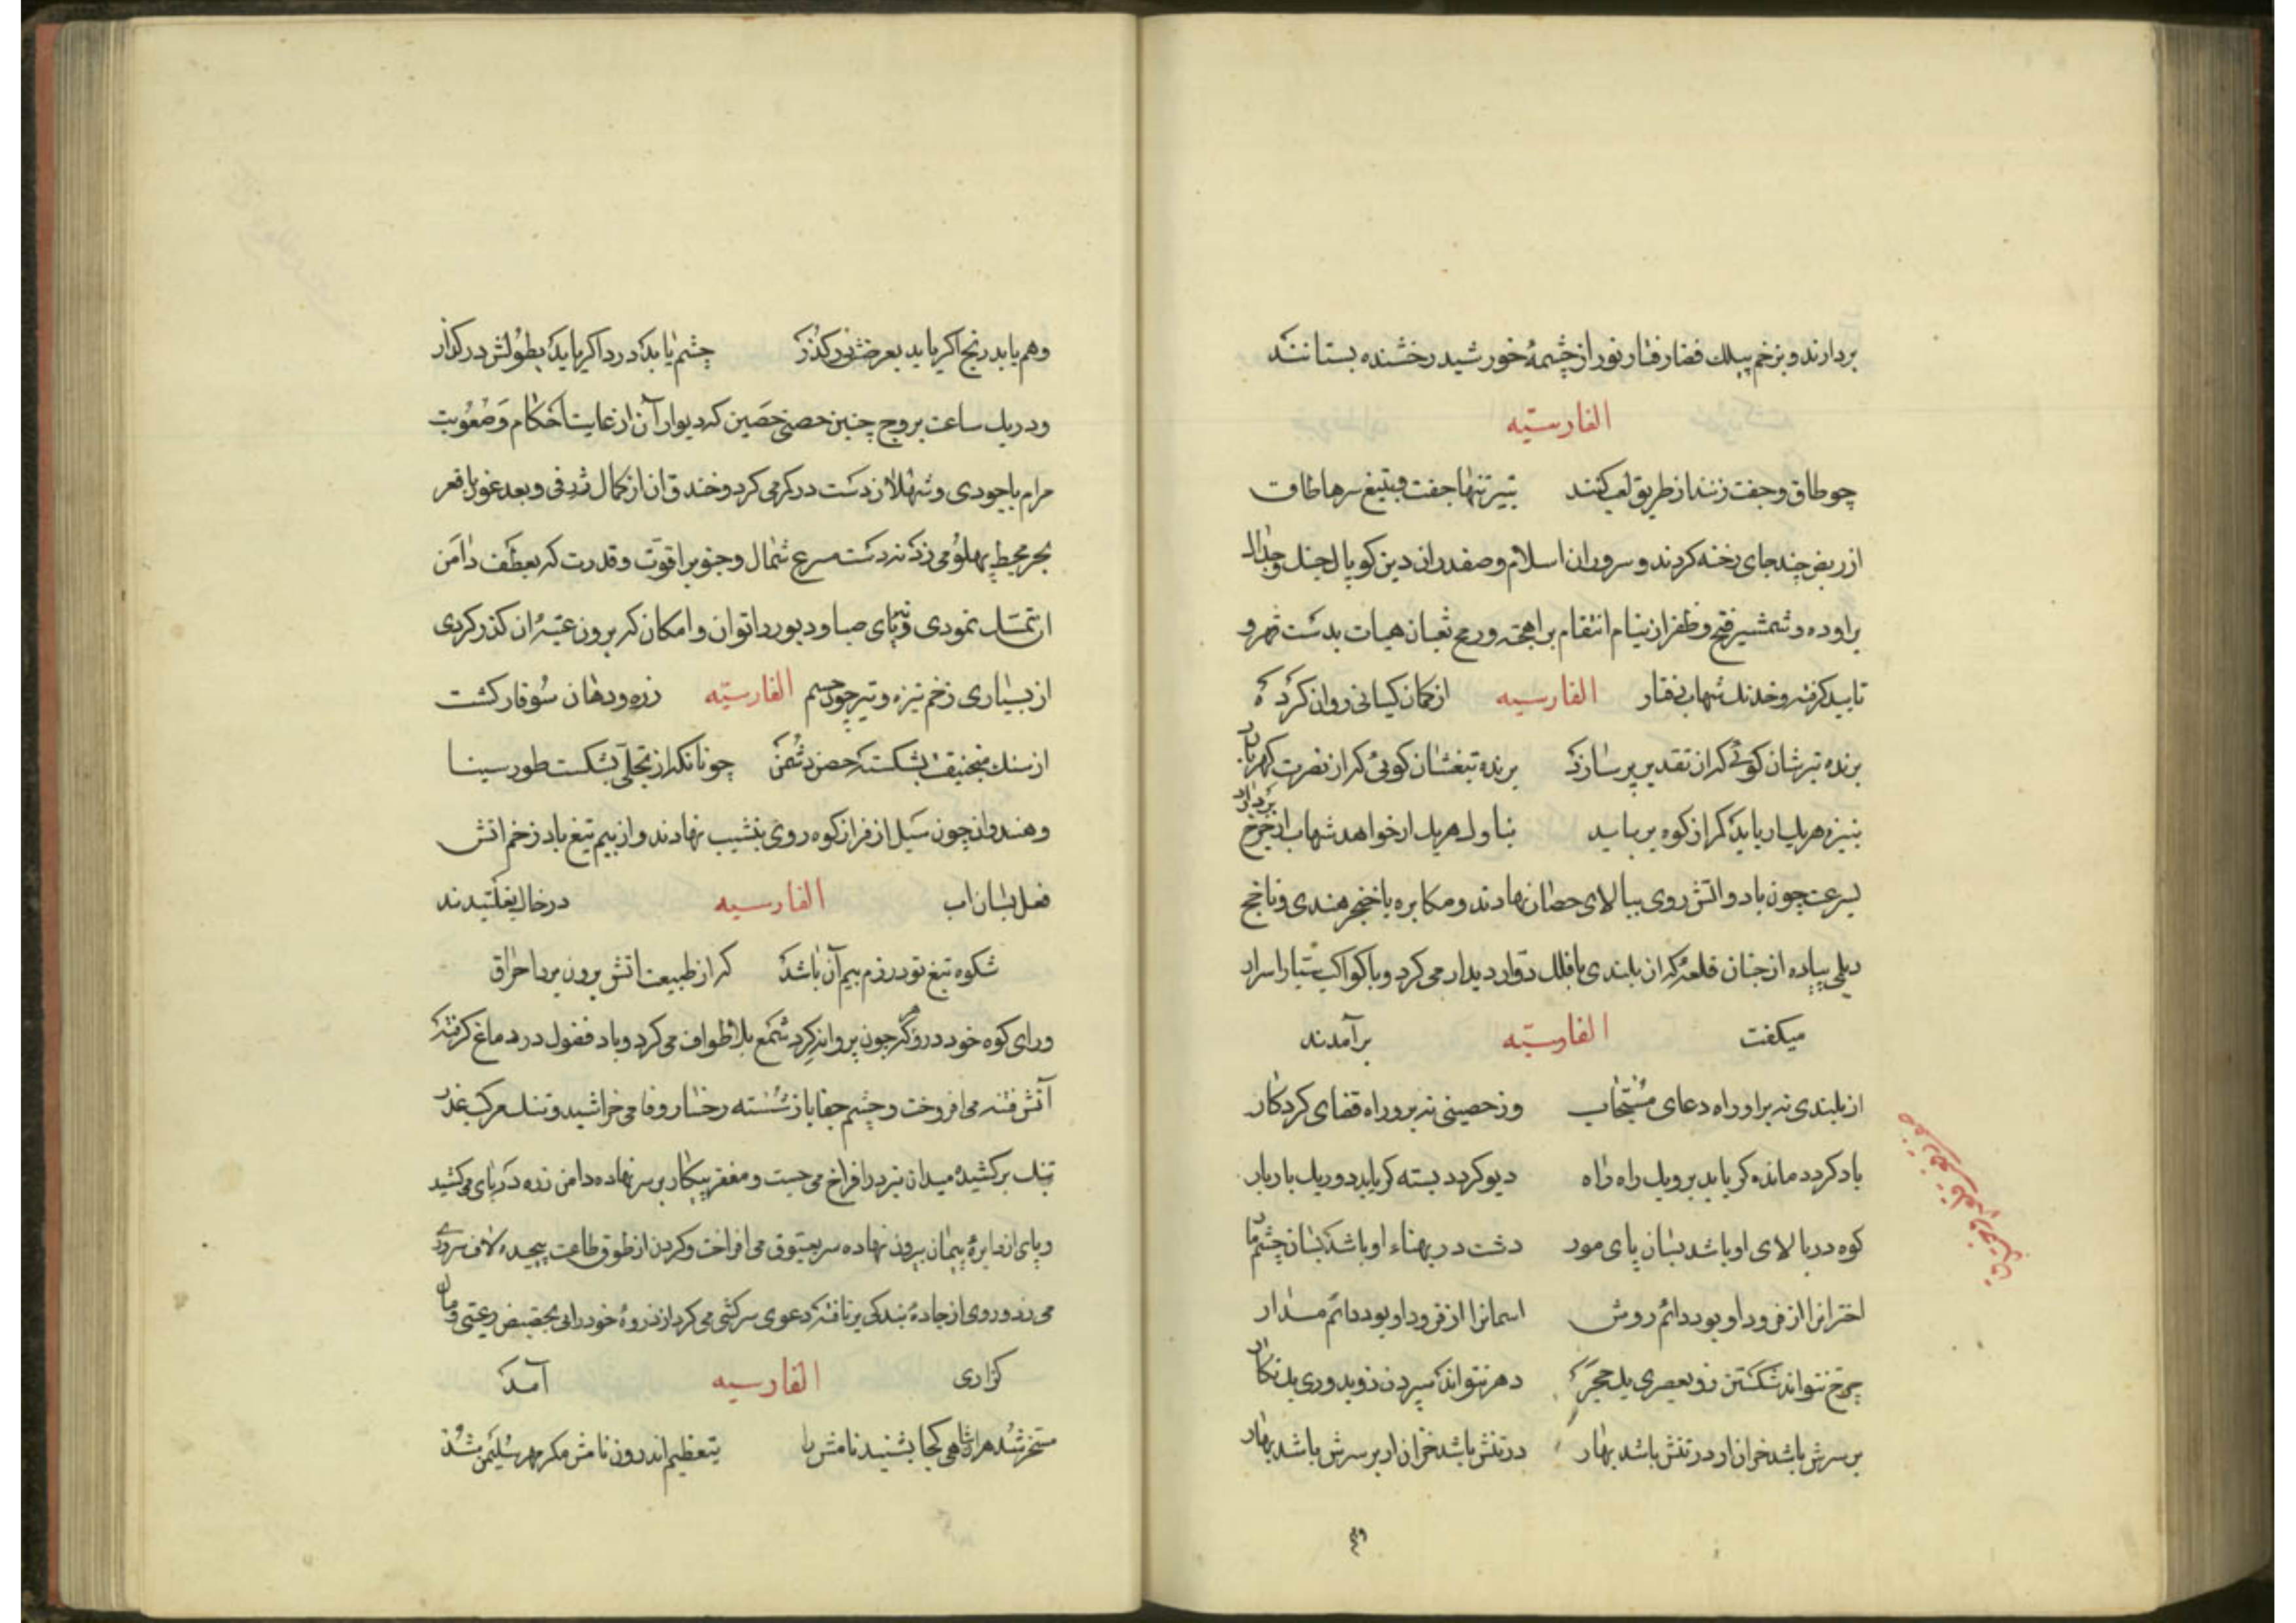 بردارند و بزخم پیلک قضا رفتار نور از چشمهٔ خورشید رخشنده بستانند
الفارسیّه
چو طاق و جفت زنند از طریق لعب کنند بتیر تنها جفت و بتیغ سرها طاق
از ربض چند جای رخنه کردند و سروران اسلام و صفدران دین کوپال جنک و جدال
براورده و شمشیر فتح و ظفر از نیام انتقام براهیخته و رمح ثعبان هیات بدست قهر و
تایید کرفته و خدنک شهاب رفتار الفارسیه از کمان کیانی روان کرده
برنده تیرشان کوئی که از تقدیر پر سازد برنده تیغشان کوئی که از نصرت کهر دارد
بنیزه هر یک ار باید کمر از کوه برباید بناوک هر یک ار خواهد شهاب از چرخ بردارد
بسرعت چون باد و اتش روی ببالای حصار نهادند و مکابره با خنجر هندی و ناخج
دیلمی پیاده از چنان قلعهٔ که از بلندی با فلک دوار دیدار می کرد و با کواکب سیار اسرار
میکفت الفارسیّه برآمدند
از بلندی نه بر او راه دعای مستجاب وز حصینی نه برو راه قضای کردکار
باد کردد مانده کر یابد برو یک راه راه دیو کردد بسته کر یابد درو یک بار بار
کوه در بالای او باشد بسان پای مور دشت در پهناء او باشد بسان چشم مار
اخترانرا از فرود او بود دائم روش اسمانرا از فرود او بود دائم مدار
چرخ نتواند شکستن زو بعصری یک حجر دهر نتواند سپردن زو بدوری یک نکار
بر سرش باشد خزان ار در تنش باشد بهار در تنش باشد خزان ار بر سرش باشد بهار
وهم یابد رنج اکر یابد بعرضش بر کذر چشم یابد درد اکر یابد بطولش در کذار
و در یک ساعت بروج چنین حصنی حصین که دیوار آن از غایت احکام و صعوبت
مرام با جودی و شهلان دست در کمر می کرد و خندق ان از کمال ژرفی و بعد غور با قعر
بحر محیط پهلو می زد نه دست مسرع شمال و جنوب را قوت و قدرت که بعطف دامن
ان تمسک نمودی و نه پای صبا و دبور را توان و امکان که برون عتبهٔ ان کذر کردی
از بسیاری زخم نیزه و تیر چون جسم الفارسیّه زره و دهان سوفار کشت
از سنک منجنیقت بشکسته حصن دشمن چونانکه از تجلی بشکست طور سینا
و هندوان چون سیل از فراز کوه روی بنشیب نهادند و از بیم تیغ باد زخم اتش
فعل بسان اب الفارسیه در خاک بغلتیدند
شکوه تیغ تو در رزم بیم آن باشد که از طبیعت اتش برون برد احراق
و رای کوه خود در و کر چون پروانه کرد شمع بلا طواف می کرد و باد فضول در دماغ کرفته
آتش فتنه می افروخت و چشم جفا باز شسته رخسار وفا می خراشید و تنک مرکب غدر
تنک برکشیده میدان نبرد را فراخ می جست و مغفر پیکار بر سر نهاده دامن زره در پای می کشید
و پای از دایرهٔ پیمان بیرون نهاده سر بعیوق می افراخت و کردن از طوق طاعت پیچیده لاف سروری
می زد و روی از جادهٔ بندکی برتافته دعوی سرکشی می کرد از ذروهٔ خودرایی بحضیض رعیتی و مال
کزاری الفارسیه آمد
مسخر شد هر ان شاهی کجا بشنید نامش را بتعظیم اندرون نامش مکر مهر سلیمن شد